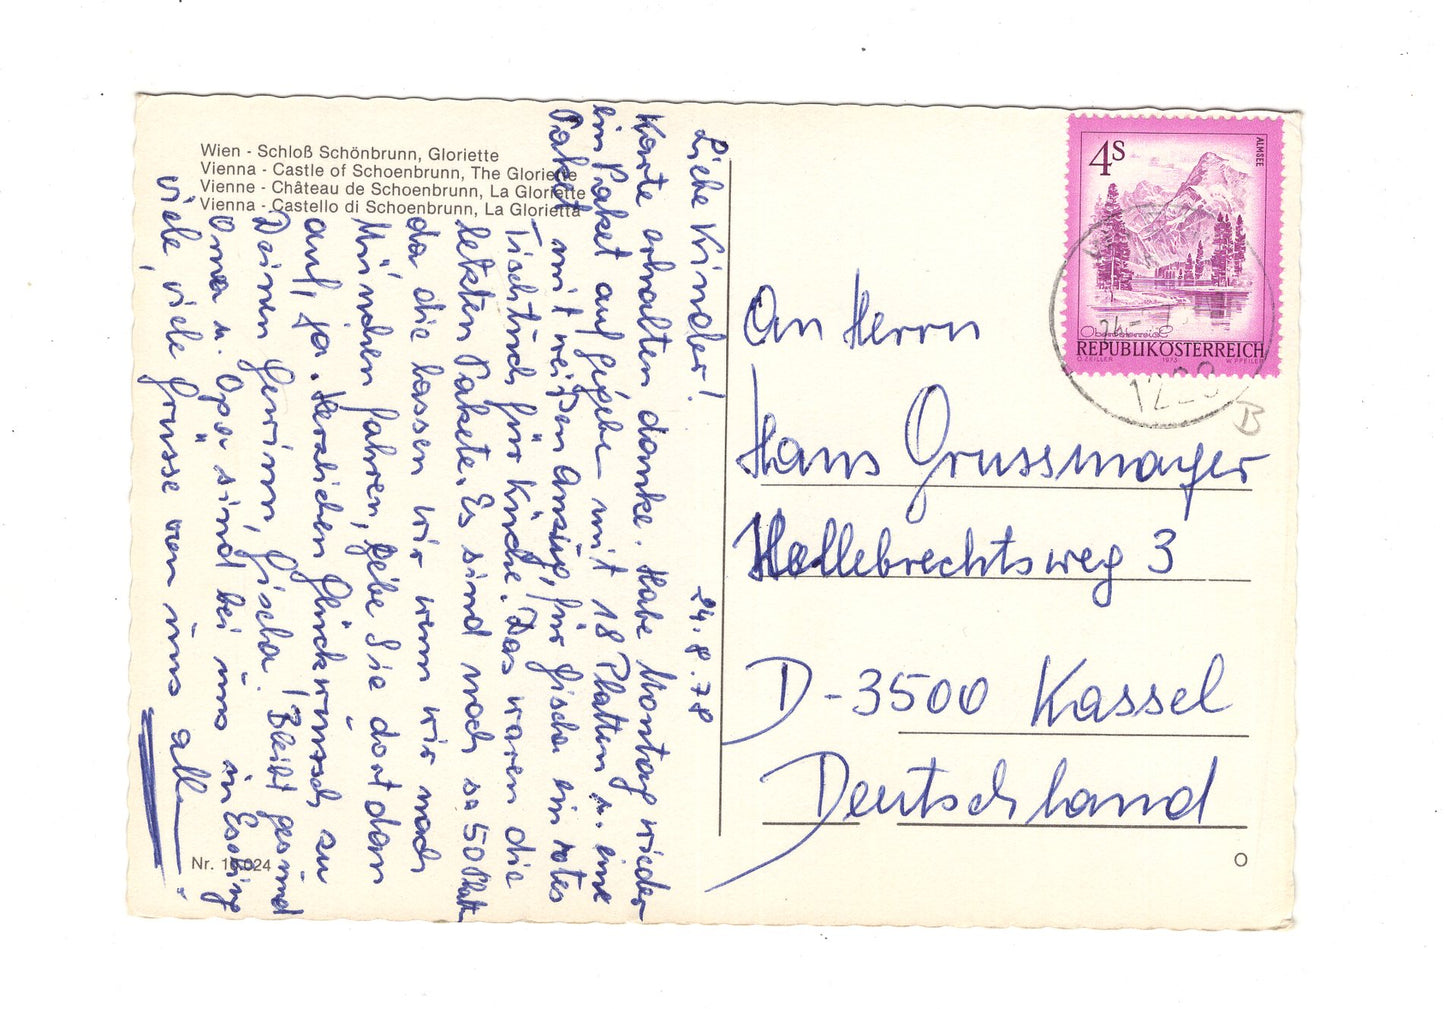 Wien - Schloß Schönbrunn, Gloriette
Vienna - Castle of Schoenbrunn, The Gloriette
Vienne - Château de Schoenbrunn, La Gloriette
Vienna - Castello di Schoenbrunn, La Glorietta
Liebe Kinder! 24.8.78
Karte erhalten danke. Habe Montag wieder
ein Paket aufgegeben mit 18 Platten u. eine
Paket mit weißen Anzug, für Gisela ein rotes
Tischtuch für Küche. Das waren die
letzten Pakete. Es sind noch ca 50 Platt
da die lassen wir wenn wir nach
München fahren, gebe Sie dort dann
auf, ja. Herzlichen Glückwunsch zu
Deinen Gewinn, Gisela! Bleibt gesund
Oma u. Opa sind bei uns in Essling
viele, viele Grüsse von uns allen
Nr. 10 024
4S
ALMSEE
Oberösterreich
REPUBLIK ÖSTERREICH
O. ZEILLER 1973 W. PFEILER
An Herrn
Hans Grussmayer
Hollebrechtsweg 3
D-3500 Kassel
Deutschland
B